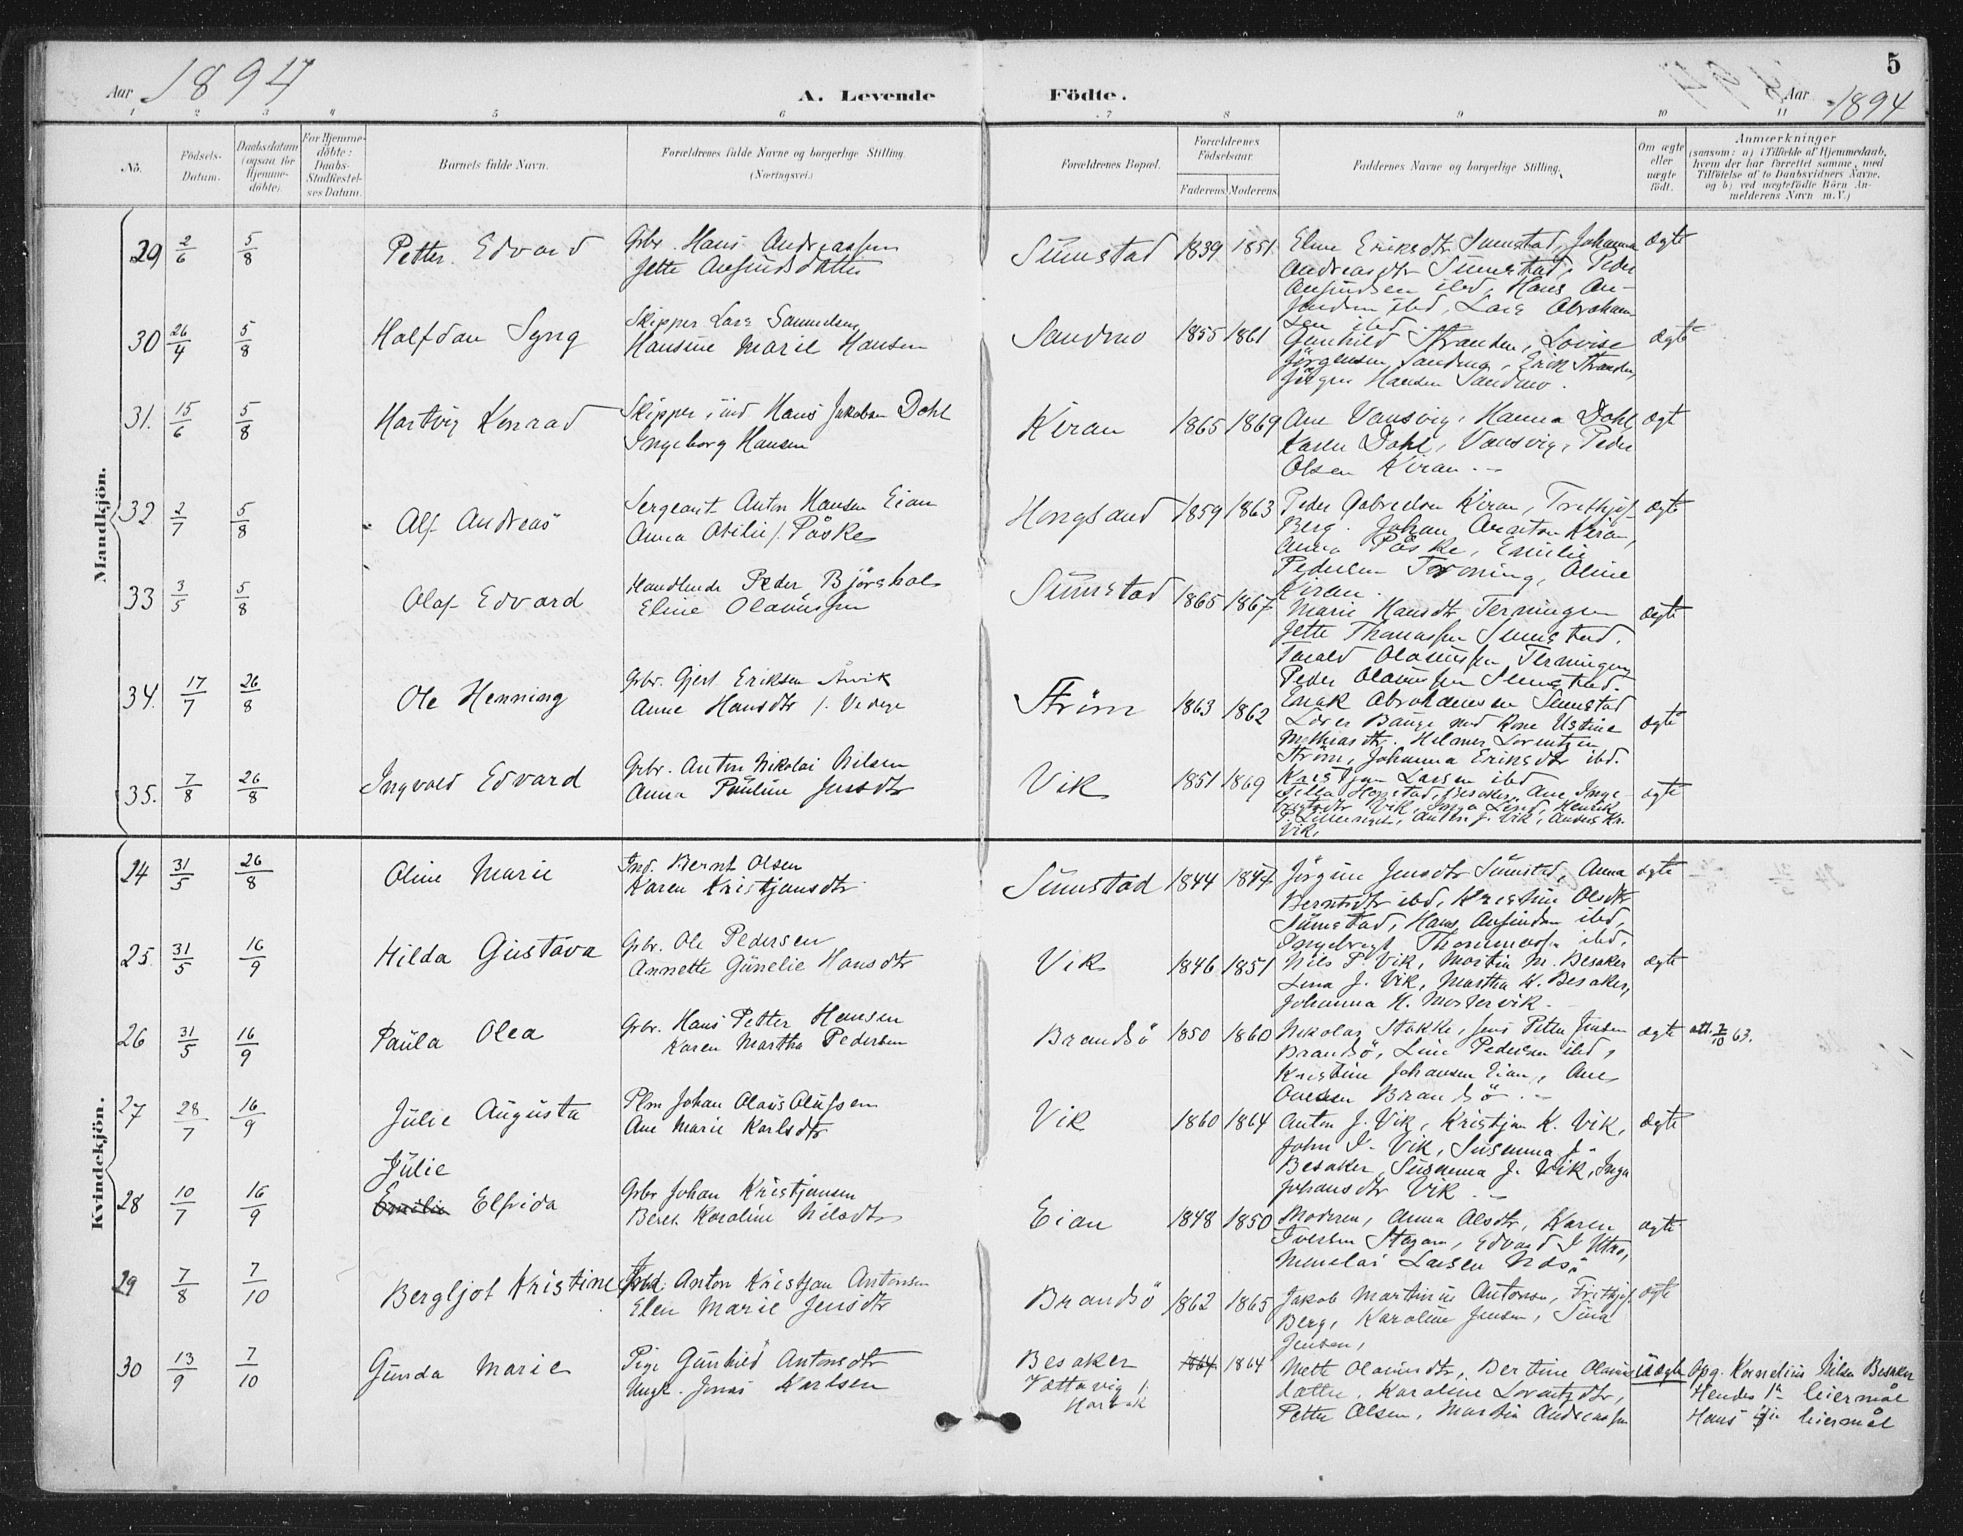 Aar 1894
A. Levende Födte.
5
Aar 1894
1 2 3 4 5 6 7 8 9 10 11
No.
Födsels-Datum.
Daabsdatum (ogsaa for Hjemme-döbte).
For Hjemme-döbte: Daabs-Stadfæstel-ses Datum.
Barnets fulde Navn.
Forældrenes fulde Navne og borgerlige Stilling. (Næringsvei.)
Forældrenes Bopæl.
Forældrenes Födselsaar.
Faderens. Moderens.
Faddernes Navne og borgerlige Stilling.
Om ægte eller uægte födt.
Anmærkninger
(saasom: a) i Tilfælde af Hjemmedaab, hvem der har forrettet samme, med Tilföielse af to Daabsvidners Navne, og b) ved uægtefödte Börn An-melderens Navn m.V.)
Mandkjön.
29 2/6 5/8 Petter Edvard Gbr. Hans Andreassen
Jette Anfindsdatter
Sumstad 1839 1851 Eline Eriksdtr Sumstad, Johanna
Andreasdtr Sumstad, Peder
Anfindsen ibd, Hans An-
findsen ibd, Lars Abraham
sen ibd.
ægte
30 26/4 5/8 Halfdan Syng Skipper Lars Samuelsen
Hansine Marie Hansen
Sandmo 1855 1861 Gunhild Stranden, Lovise
Jörgensen Sandmo, Erik Stranden,
Jörgen Hansen Sandmo.
ægte
31. 15/6 5/8 Hartvig Konrad Skipper, ind Hans Jakobsen Dahl
Ingeborg Hansen
Kiran 1865 1869 Ane Vansvig, Hanna Dahl
Karen Dahl, Vansvig, Peder
Olsen Kiran.
ægt
32 2/7 5/8 Alf Andreas Sergeant Anton Hansen Eian
Anna Otilie f. Påske
Hongsand 1859 1863 Peder Gabrielsen Kiran, Frithjof
Berg. Johan Kiran,
Anna Påske, Emilie
Pedersen Terning, Oline
Kiran.
ægte
33 3/5 5/8 Olaf Edvard Handlende Peder Bjørshol
Eline Olaussen
Sumstad 1865 1867 Marie Hansdtr Terningen
Jette Thomassen Sumstad.
Olaussen Terningen
Peder Olaussen Sumstad.
ægte
34. 17/7 26/8 Ole Henning Gbr. Gjert Eriksen Årvik
Anne Hansdtr f.
Strøm 1863 1862 Enok Abrahamsen Sumstad
Lars Bauge med Kone Ustine
Mathiasdtr. Helmer Lorentzen
Strøm, Johanna Eriksdtr ibd.
ægte
35. 7/8 26/8 Ingvald Edvard Gbr. Anton Nikolai Nilsen
Anna Pauline Jensdtr
Vik 1851 1869 Kristjan Larsen ibd
Hopstad, Besaker, Ane Inge-
Vik, Inga Lind, Henrik
Anton J. Vik, Anders Kr.
Vik,
ægte
Kvindekjön.
24 31/5 26/8 Oline Marie Ind. Bernt Olsen
Karen Kristjansdtr
Sumstad 1844 1847 Jörgine Jensdtr Sumstad, Anna
Berntsdtr ibd, Kristine Olsdtr
Sumstad, Hans Anfindsen ibd,
Ingebrigt Thomassen ibd.
ægte
25. 31/5 16/9 Hilda Gustava Gbr. Ole Pedersen
Annette Gunelie Hansdtr
Vik 1846 1851 Nils P. Vik, Martin M. Besaker
Lina J. Vik, Martha K. Besaker,
Johanna H. Mortervik.
ægte
26 31/5 16/9 Paula Olea Gbr. Hans Petter Hansen
Karen Martha Pedersen
Brandsö 1850 1860 Nikolai Stokke, Jens Petter Jensen
Brandsö, Line Pedersen ibd,
Kristine Johansen Eian, Ane
Brandsö.
ægte att. 2/10 63.
27 28/7 16/9 Julie Augusta Plm Johan Olaus Olufsen
Ane Marie Karlsdtr
Vik 1860 1864 Anton J. Vik, Kristjan K. Vik,
John I. Vik, Susanna J.
Besaker, Susanna J. Vik, Inga
Johansdtr Vik.
ægte
28 10/7 16/9 Julie
Emilie Elfrida Gbr Johan Kristjansen
Beret Karoline Nilsdtr
Eian 1848 1850 Moderen, Anna Olsdtr, Karen
Iversen Stagan, Edvard I Utro,
Larsen
ægte
29 7/8 7/10 Bergljot Kristine Anton Kristjan Antonsen
Elen Marie Jensdtr
Brandsö 1862 1865 Jakob Martinus Antonsen, Frithjof
Berg, Karoline Jensen, Sina
Jensen,
ægte
30 13/9 7/10 Gunda Marie Pige Gunhild Antonsdtr
Ungk. Jonas Karlsen
Besaker
Vettavig i
Harbak
1864 1864 Mette Olausdtr, Bertine Olaus
datter, Karoline Lorentzdtr,
Petter Olsen, Martin Andreassen
Uægte Opg. Kornelius Nilsen Besaker
Hendes 1ste leiermål
Hans leiermål